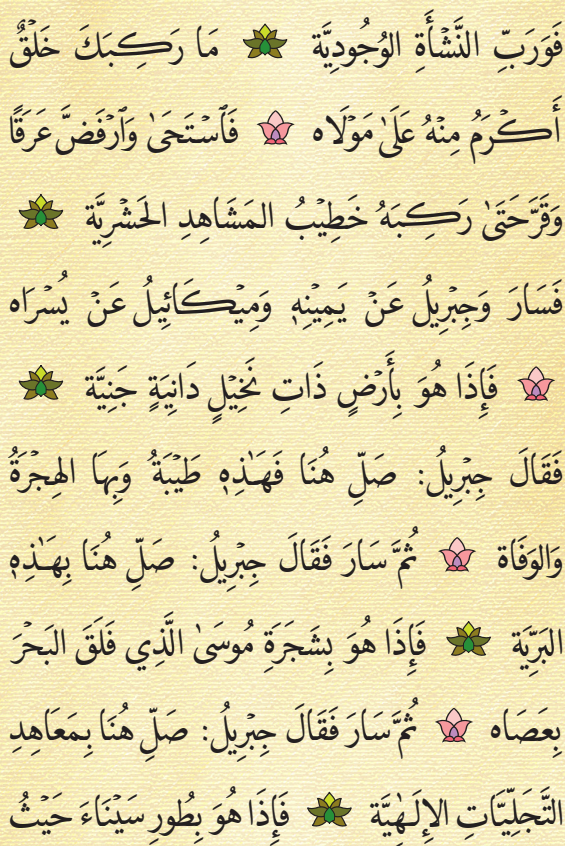 فَوَرَبِّ النَّشْأَةِ الوُجُودِيَّة مَا رَكِبَكَ خَلْقٌ
أَكْرَمُ مِنْهُ عَلَىٰ مَوْلَاه فَٱسْتَحَىٰ وَٱرْفَضَّ عَرَقًا
وَقَرَّ حَتَىٰ رَكِبَهُ خَطِيْبُ المَشَاهِدِ الحَشْرِيَّة
فَسَارَ وَجِبْرِيلُ عَنْ يَمِيْنِهِۦ وَمِيْكَائِيلُ عَنْ يُسْرَاه
فَإِذَا هُوَ بِأَرْضٍ ذَاتِ نَخِيْلٍ دَانِيَةٍ جَنِيَّة
فَقَالَ جِبْرِيلُ: صَلِّ هُنَا فَهَٰذِهِۦ طَيْبَةُ وَبِهَا الهِجْرَةُ
وَالوَفَاة ثُمَّ سَارَ فَقَالَ جِبْرِيلُ: صَلِّ هُنَا بِهَٰذِهِۦ
البَرِّيَّة فَإِذَا هُوَ بِشَجَرَةِ مُوسَىٰ الَّذِي فَلَقَ البَحْرَ
بِعَصَاه ثُمَّ سَارَ فَقَالَ جِبْرِيلُ: صَلِّ هُنَا بِمَعَاهِدِ
التَّجَلِيَّاتِ الإِلَٰهِيَّة فَإِذَا هُوَ بِطُورِ سَيْنَاءَ حَيْثُ